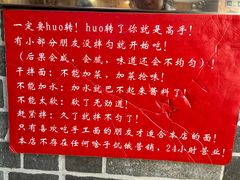 一定要huo转! huo转了你就是高手!
有小部分朋友没拌匀就开始吃!
(后果会咸, 会腻, 味道还会不均匀)!
干拌面: 不能加菜, 加菜抢味!
不能加水: 加水就巴不起来酱料了!
不能太软: 软了无劲道!
赶紧拌: 久了就拌不匀了!
只有喜欢吃手工面的朋友才适合本店的面!
本店不存在任何啥子饥饿营销, 24小时营业!